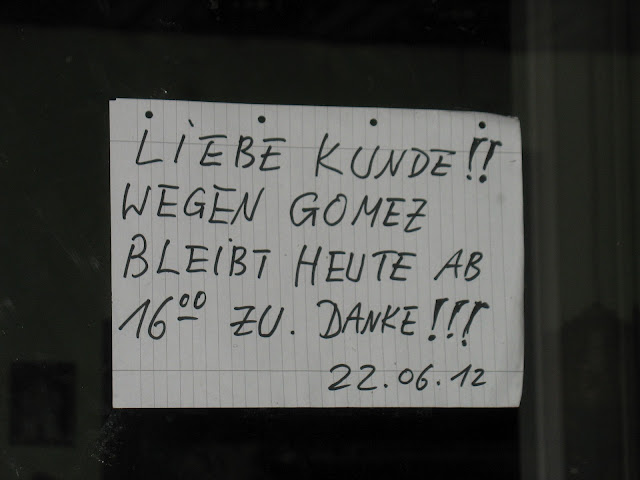 LIEBE KUNDE!!
WEGEN GOMEZ
BLEIBT HEUTE AB
16⁰⁰ ZU. DANKE!!!
22.06.12